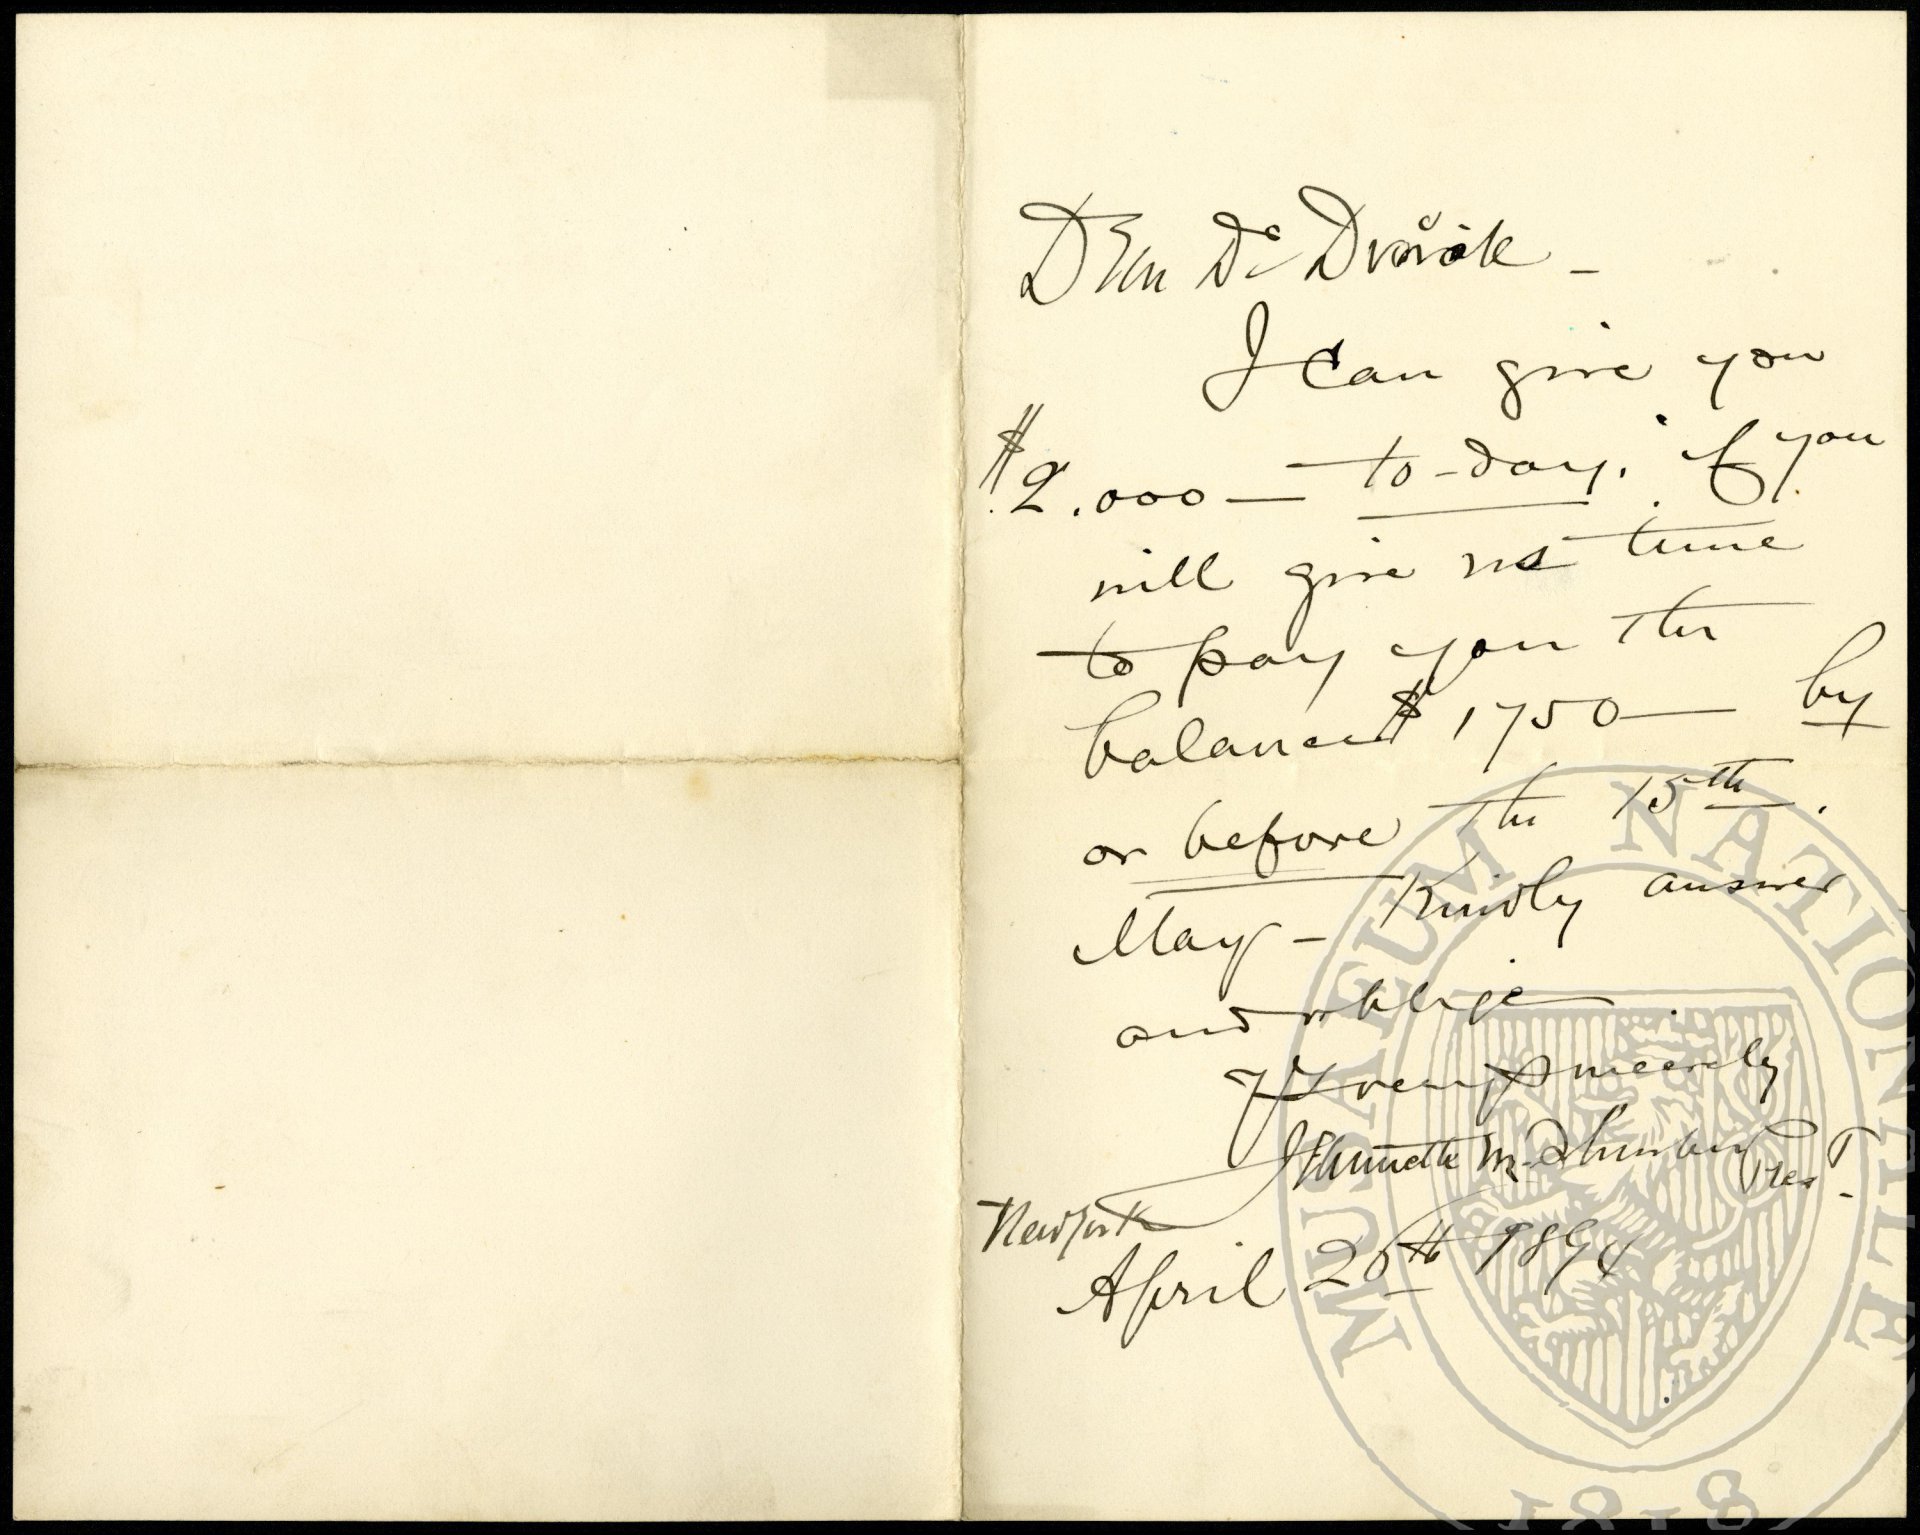 Dear Dr Dvořák –
I can give you
$2.000 — to-day, if you
will give us time
to pay you the
balance $1750 — by
or before the 15th.
May – Kindly answer
and oblige
Yrs very sincerely
Jeannette M. Thurber Prest.
New York
April 26th 1894
MUSAEUM NATIONALE
1818